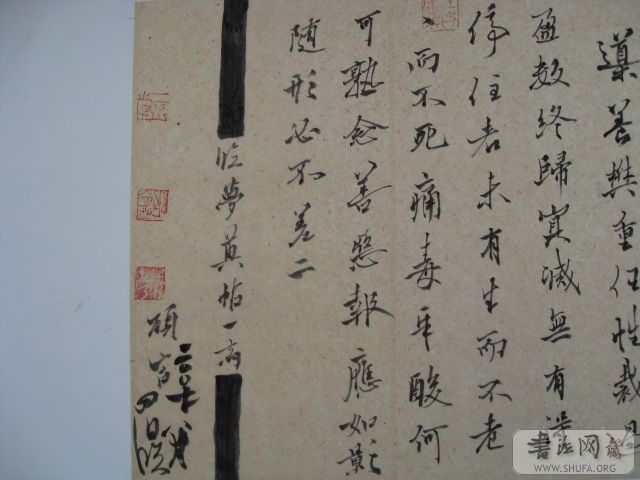 導養樊重任性裁
盈數終歸冥滅無有
停住者未有生而不老
、而不死痛毒辛酸何
可熟念善惡報應如影
随形必不差二
临夢奠帖一
書法网
WWW.SHUFA.ORG